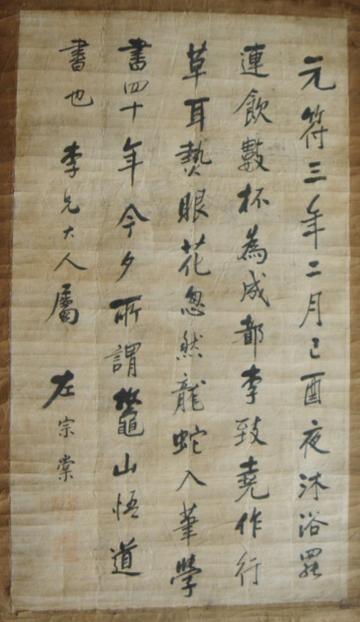 元符三年二月己酉夜沐浴罷
連飲數杯為成都李致堯作行
草耳熱眼花忽然龍蛇入筆學
書四十年今夕所謂鼇山悟道
書也 李兄大人屬 左宗棠